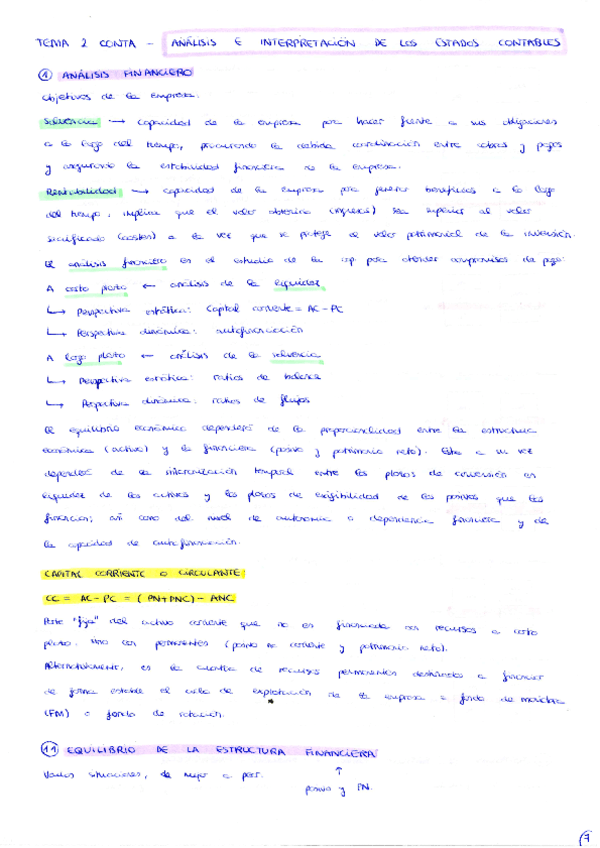 TEMA 2 CONTA - ANÁLISIS E INTERPRETACIÓN DE LOS ESTADOS CONTABLES
① ANÁLISIS FINANCIERO
Objetivos de la empresa:
Solvencia → capacidad de la empresa para hacer frente a sus obligaciones
a lo largo del tiempo, procurando la debida coordinación entre cobros y pagos
y asegurando la estabilidad financiera de la empresa.
Rentabilidad → capacidad de la empresa para generar beneficios a lo largo
del tiempo, implica que el valor obtenido (ingresos) sea superior al valor
sacrificado (costes) a la vez que se protege el valor patrimonial de la inversión.
El análisis financiero es el estudio de la cap. para atender compromisos de pago:
A corto plazo ← análisis de la liquidez
↳ Perspectiva estática: Capital corriente = AC - PC
↳ Perspectiva dinámica: autofinanciación
A largo plazo ← análisis de la solvencia
↳ Perspectiva estática: ratios de balance
↳ Perspectiva dinámica: ratios de flujos
El equilibrio económico dependerá de la proporcionalidad entre la estructura
económica (activo) y la financiera (pasivo y patrimonio neto). Esta a su vez
dependerá de la sincronización temporal entre los plazos de conversión en
liquidez de los activos y los plazos de exigibilidad de los pasivos que los
financian; así como del nivel de autonomía o dependencia financiera y de
la capacidad de autofinanciación.
CAPITAL CORRIENTE O CIRCULANTE:
CC = AC - PC = (PN+PNC) - ANC
Parte "fija" del activo corriente que no es financiada con recursos a corto
plazo, sino con permanentes (pasivo no corriente y patrimonio neto).
Alternativamente, es la cuantía de recursos permanentes destinados a financiar
de forma estable el ciclo de explotación de la empresa = fondo de maniobra
(FM) o fondo de rotación.
①.1 EQUILIBRIO DE LA ESTRUCTURA FINANCIERA
Varias situaciones, de mejor a peor. ↑
pasivo y PN.
7